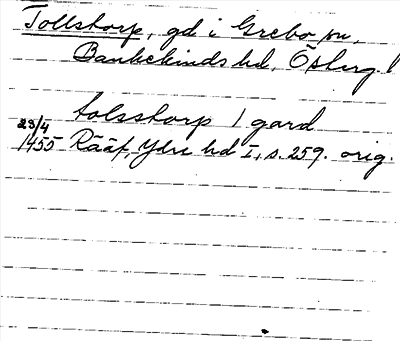 Tollstorp, gd i Grebo sn,
Bankekinds hd, Östergl
tolsstorp 1 gard
23/4
1455 Rääf, Ydre hd I, s. 259. orig.